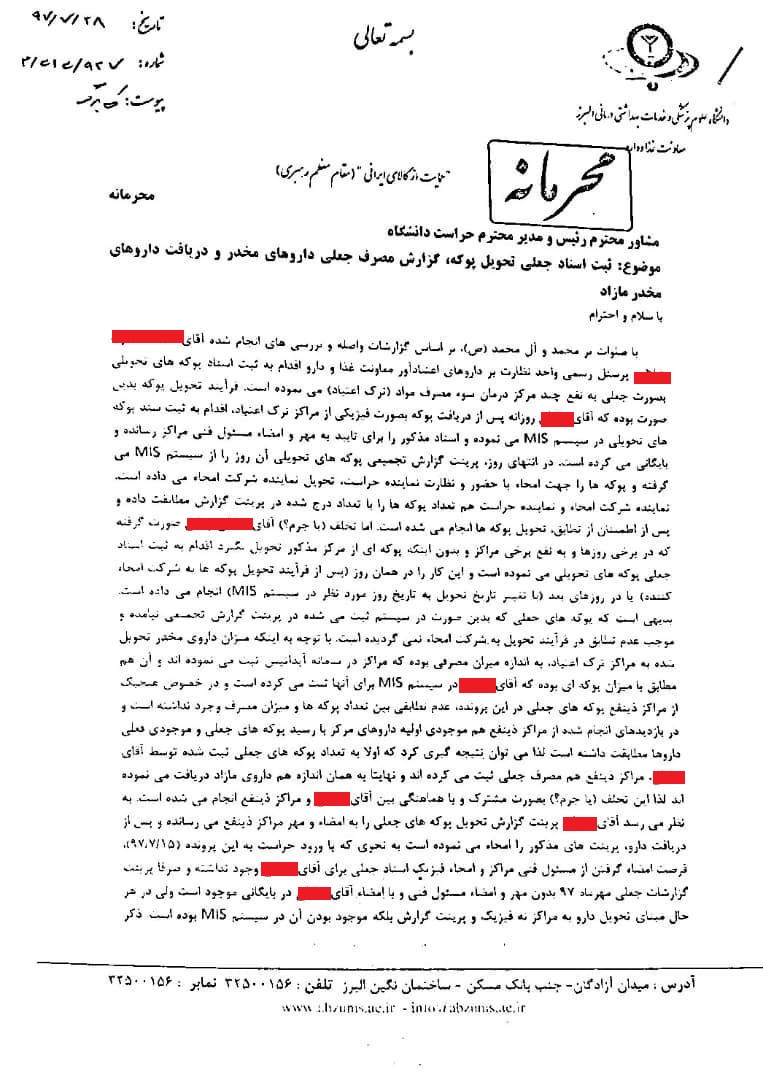 بسمه تعالی
تاریخ: ۹۷/۷/۲۸
شماره:
پیوست:
دانشگاه علوم پزشکی و خدمات بهداشتی درمانی البرز
معاونت غذا و دارو
محرمانه
"حمایت از کالای ایرانی" (مقام معظم رهبری)
محرمانه
مشاور محترم رئیس و مدیر محترم حراست دانشگاه
موضوع: ثبت اسناد جعلی تحویل پوکه، گزارش مصرف جعلی داروهای مخدر و دریافت داروهای
مخدر مازاد
با سلام و احترام
با صلوات بر محمد و آل محمد (ص)، بر اساس گزارشات واصله و بررسی های انجام شده آقای
پرسنل رسمی واحد نظارت بر داروهای اعتیادآور معاونت غذا و دارو اقدام به ثبت اسناد پوکه های تحویلی
بصورت جعلی به نفع چند مرکز درمان سوء مصرف مواد (ترک اعتیاد) می نموده است. فرآیند تحویل پوکه بدین
صورت بوده که آقای روزانه پس از دریافت پوکه بصورت فیزیکی از مراکز ترک اعتیاد، اقدام به ثبت سند پوکه
های تحویلی در سیستم MIS می نموده و اسناد مذکور را برای تایید به مهر و امضاء مسئول فنی مراکز رسانده و
بایگانی می کرده است. در انتهای روز، پرینت گزارش تجمیعی پوکه های تحویلی آن روز را از سیستم MIS می
گرفته و پوکه ها را جهت امحاء با حضور و نظارت نماینده حراست، تحویل نماینده شرکت امحاء می داده است.
نماینده شرکت امحاء و نماینده حراست هم تعداد پوکه ها را با تعداد درج شده در پرینت گزارش مطابقت داده و
پس از اطمینان از تطابق، تحویل پوکه ها انجام می شده است. اما تخلف (یا جرم؟) آقای صورت گرفته
که در برخی روزها و به نفع برخی مراکز و بدون اینکه پوکه ای از مرکز مذکور تحویل بگیرد اقدام به ثبت اسناد
جعلی پوکه های تحویلی می نموده است و این کار را در همان روز (پس از فرآیند تحویل پوکه ها به شرکت امحاء
کننده) یا در روزهای بعد (با تغییر تاریخ تحویل به تاریخ روز مورد نظر در سیستم MIS) انجام می داده است.
بدیهی است که پوکه های جعلی که بدین صورت در سیستم ثبت می شده در پرینت گزارش تجمعی نیامده و
موجب عدم تطابق در فرآیند تحویل به شرکت امحاء نمی گردیده است. با توجه به اینکه میزان داروی مخدر تحویل
شده به مراکز ترک اعتیاد، به اندازه میزان مصرفی بوده که مراکز در سامانه آیداتیس ثبت می نموده اند و آن هم
مطابق با میزان پوکه ای بوده که آقای در سیستم MIS برای آنها ثبت می کرده است و در خصوص هیچیک
از مراکز ذینفع پوکه های جعلی در این پرونده، عدم تطابقی بین تعداد پوکه ها و میزان مصرف وجود نداشته است و
در بازدیدهای انجام شده از مراکز ذینفع هم موجودی اولیه داروهای مرکز با رسید پوکه های جعلی و موجودی فعلی
داروها مطابقت داشته است لذا می توان نتیجه گیری کرد که اولا به تعداد پوکه های جعلی ثبت شده توسط آقای
، مراکز ذینفع هم مصرف جعلی ثبت می کرده اند و نهایتا به همان اندازه هم داروی مازاد دریافت می نموده
اند لذا این تخلف (یا جرم؟) بصورت مشترک و با هماهنگی بین آقای و مراکز ذینفع انجام می شده است. به
نظر می رسد آقای پرینت گزارش تحویل پوکه های جعلی را به امضاء و مهر مراکز ذینفع می رسانده و پس از
دریافت دارو، پرینت های مذکور را امحاء می نموده است به نحوی که با ورود حراست به این پرونده (۹۷.۷/۱۵)،
فرصت امضاء گرفتن از مسئول فنی مراکز و امحاء فیزیک اسناد جعلی برای آقای وجود نداشته و صرفا پرینت
گزارشات جعلی مهرماه ۹۷ بدون مهر و امضاء مسئول فنی و با امضاء آقای در بایگانی موجود است ولی در هر
حال مبنای تحویل دارو به مراکز نه فیزیک و پرینت گزارش بلکه موجود بودن آن در سیستم MIS بوده است. ذکر
آدرس : میدان آزادگان- جنب بانک مسکن - ساختمان نگین البرز تلفن : ۳۲۵۰۰۱۵۶ نمابر : ۳۲۵۰۰۱۵۶
www.abzums.ac.ir - info@abzums.ac.ir